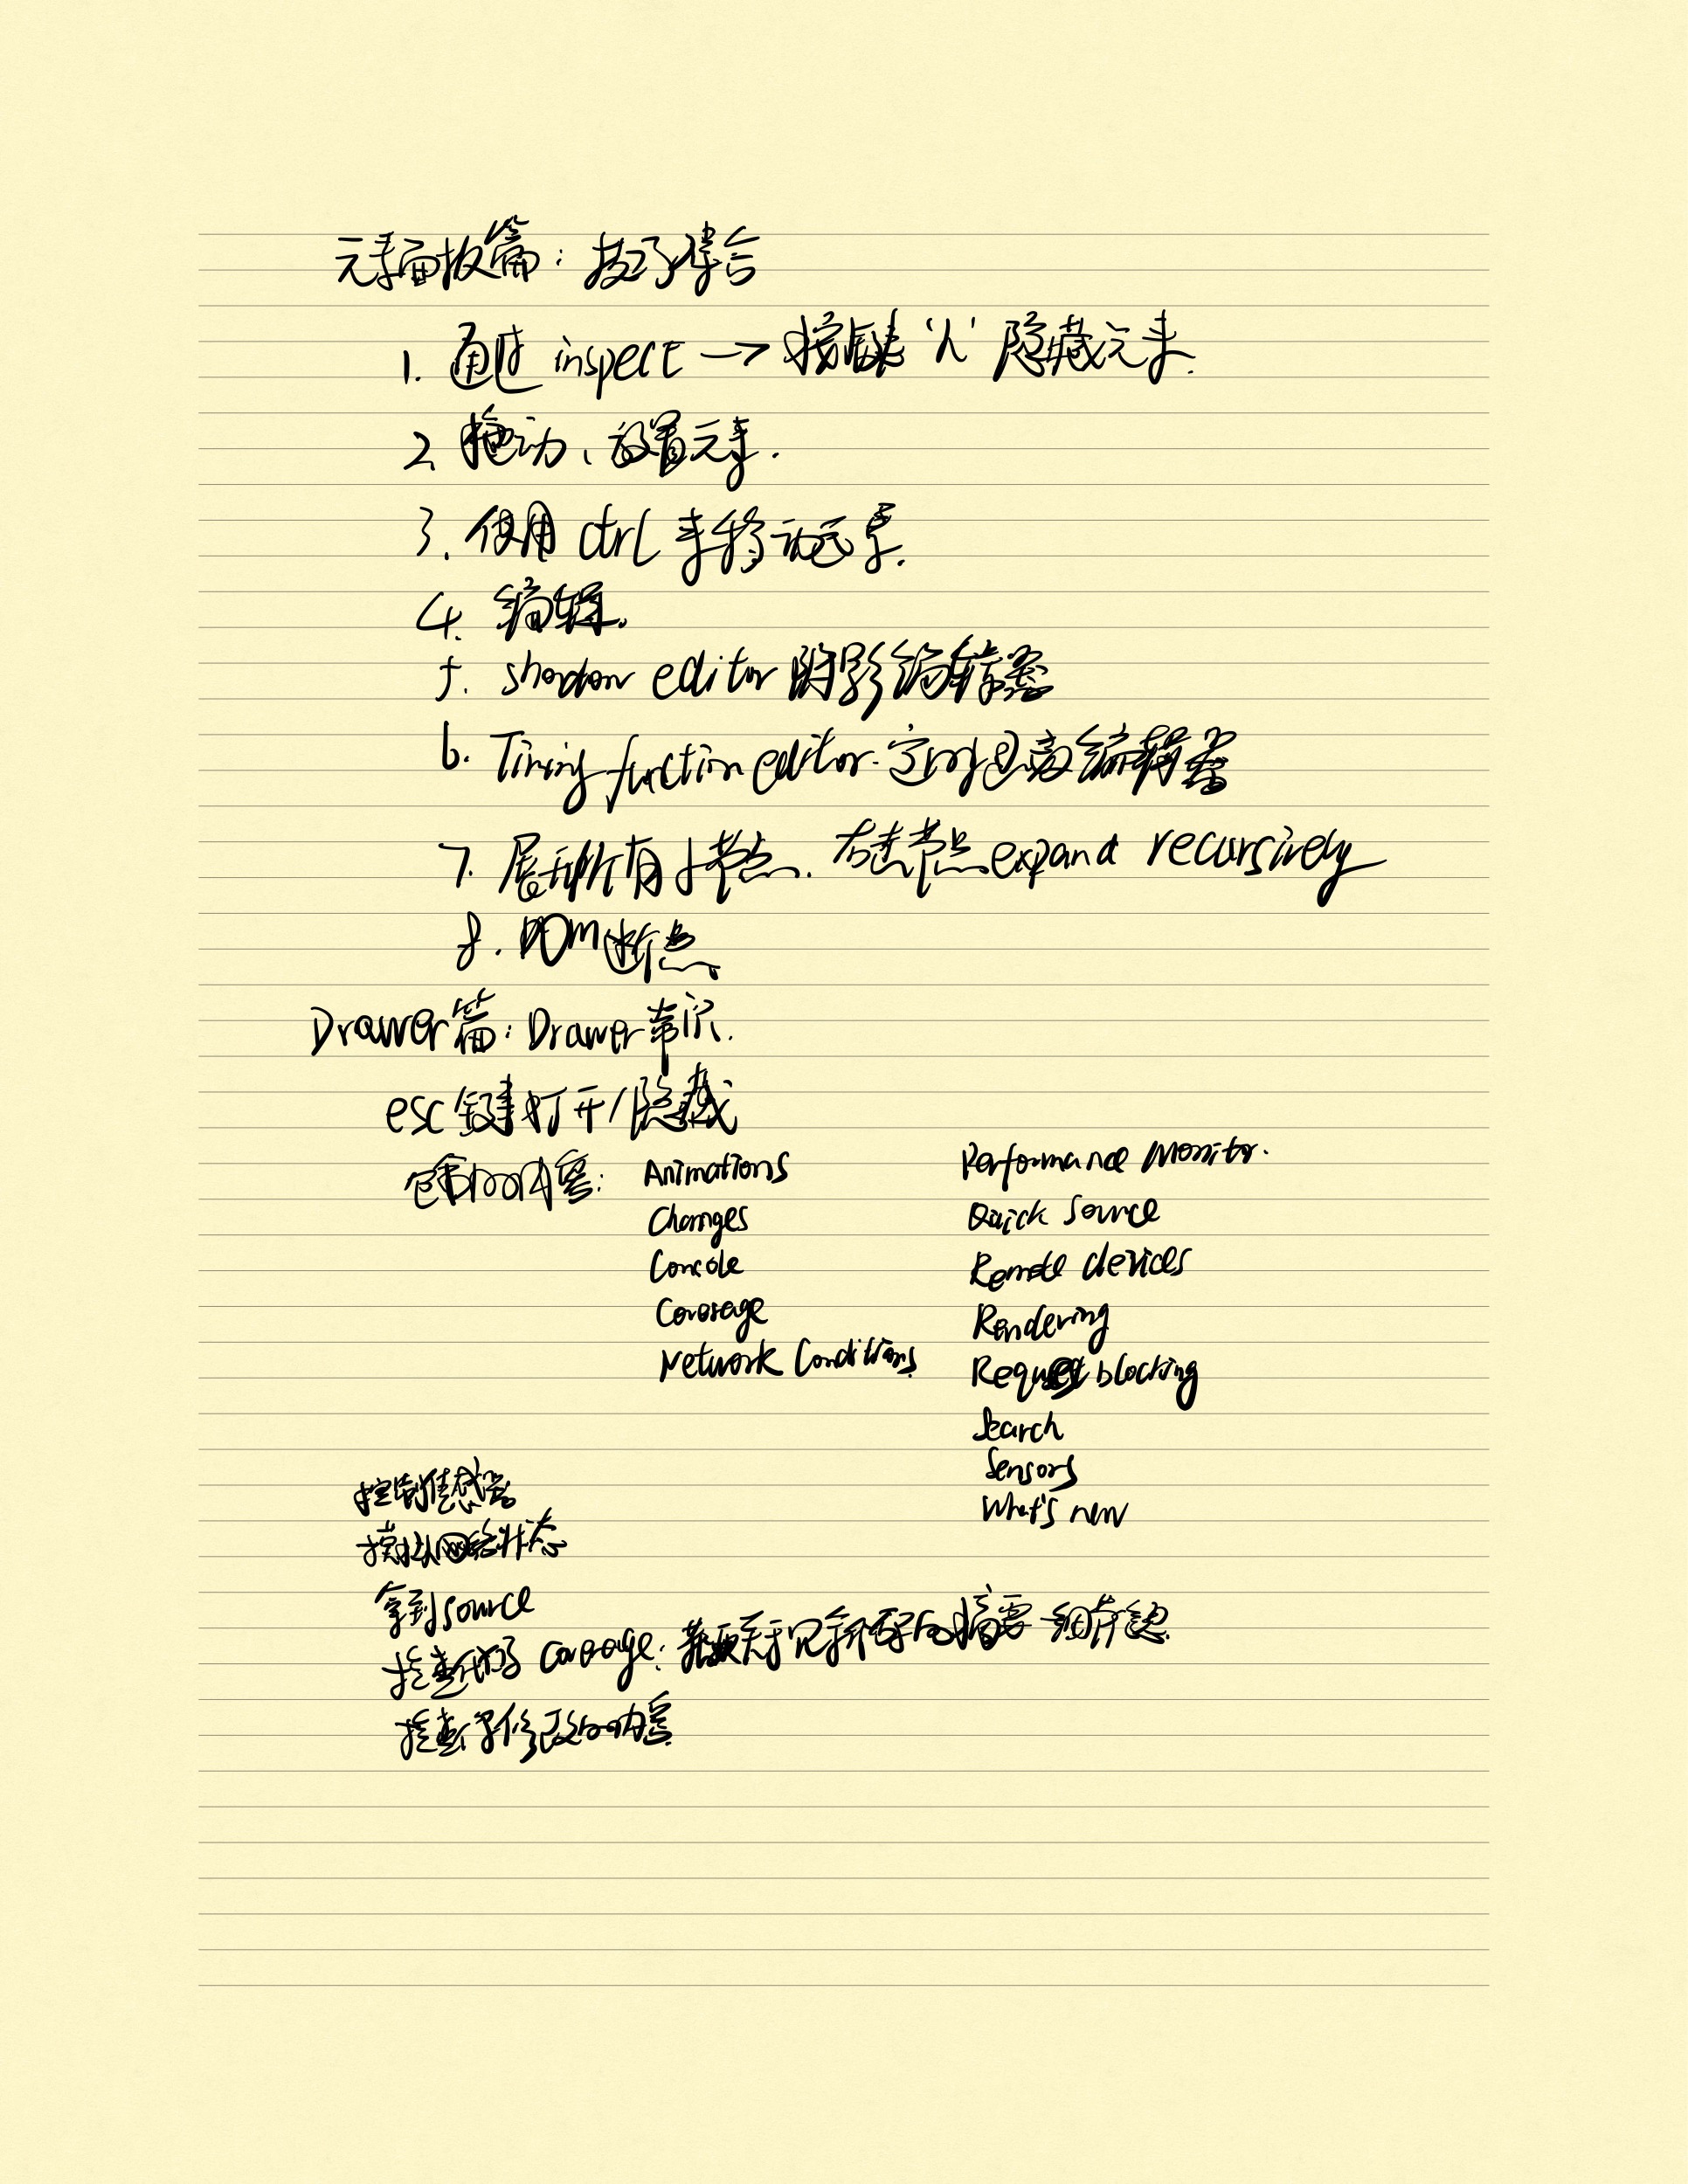 元素面板篇：技巧集合
1. 通过 inspect → 按键 'h' 隐藏元素.
2. 拖动、放置元素.
3. 使用 ctrl 来移动元素.
4. 编辑.
5. shadow editor 阴影编辑器
6. Timing function editor. 定时函数编辑器
7. 展开所有子节点. 右击节点 expand recursively
8. DOM 断点
Drawer篇：Drawer常识.
esc 键打开/隐藏
包含的内容：
Animations
Changes
Console
Coverage
Network Conditions
Performance Monitor.
Quick Source
Remote devices
Rendering
Request blocking
Search
Sensors
What's new
控制传感器
模拟网络状态
拿到 source
检查代码 coverage：
检查修改的内容